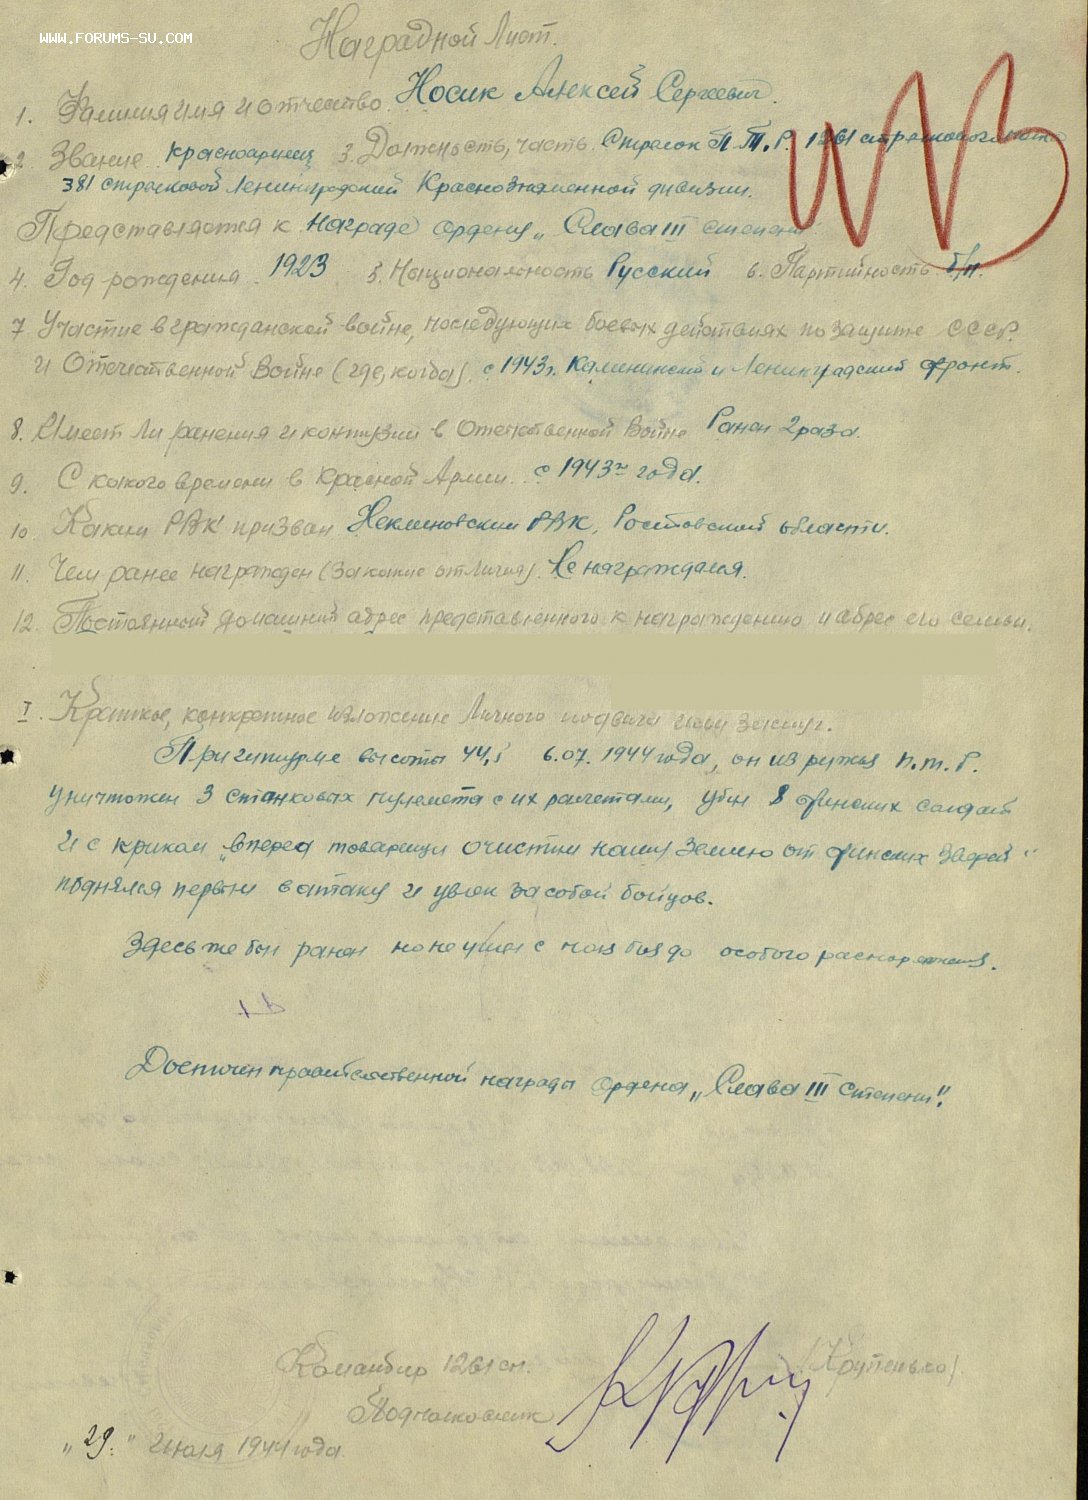 WWW.FORUMS-SU.COM
Наградной Лист.
1. Фамилия имя и отчество Носик Алексей Сергеевич.
2. Звание красноармеец 3. Должность, часть Стрелок П.Т.Р. 1261 стрелкового полка
381 стрелковой Ленинградской Краснознаменной дивизии.
Представляется к награде ордену „Слава III степени"
4. Год рождения 1923 5. Национальность Русский 6. Партийность б/п.
7 Участие в гражданской войне, последующих боевых действиях по защите СССР.
и Отечественной Войне (где, когда). с 1943г. Калининский и Ленинградский фронт.
8. Имеет ли ранения и контузии в Отечественной Войне Ранен 2 раза.
9. С какого времени в Красной Армии. с 1943го года.
10 Каким РВК призван Неклиновским РВК, Ростовской области.
11. Чем ранее награжден (за какие отличия). Не награждался.
12. Постоянный домашний адрес представленного к награждению и адрес его семьи.
I. Краткое, конкретное изложение личного подвига или заслуг.
При штурме высоты 44,1 6.07.1944 года, он из ружья П.Т.Р.
уничтожил 3 станковых пулемета с их расчетами, убил 8 финских солдат
и с криком „вперед товарищи очистим нашу землю от финских зверей"
поднялся первым в атаку и увлек за собой бойцов.
Здесь же был ранен но не ушел с поля боя до особого распоряжения.
Достоин правительственной награды ордена „Слава III степени".
Командир 1261 сп.
Подполковник /Крупенько/
„29." июля 1944 года.